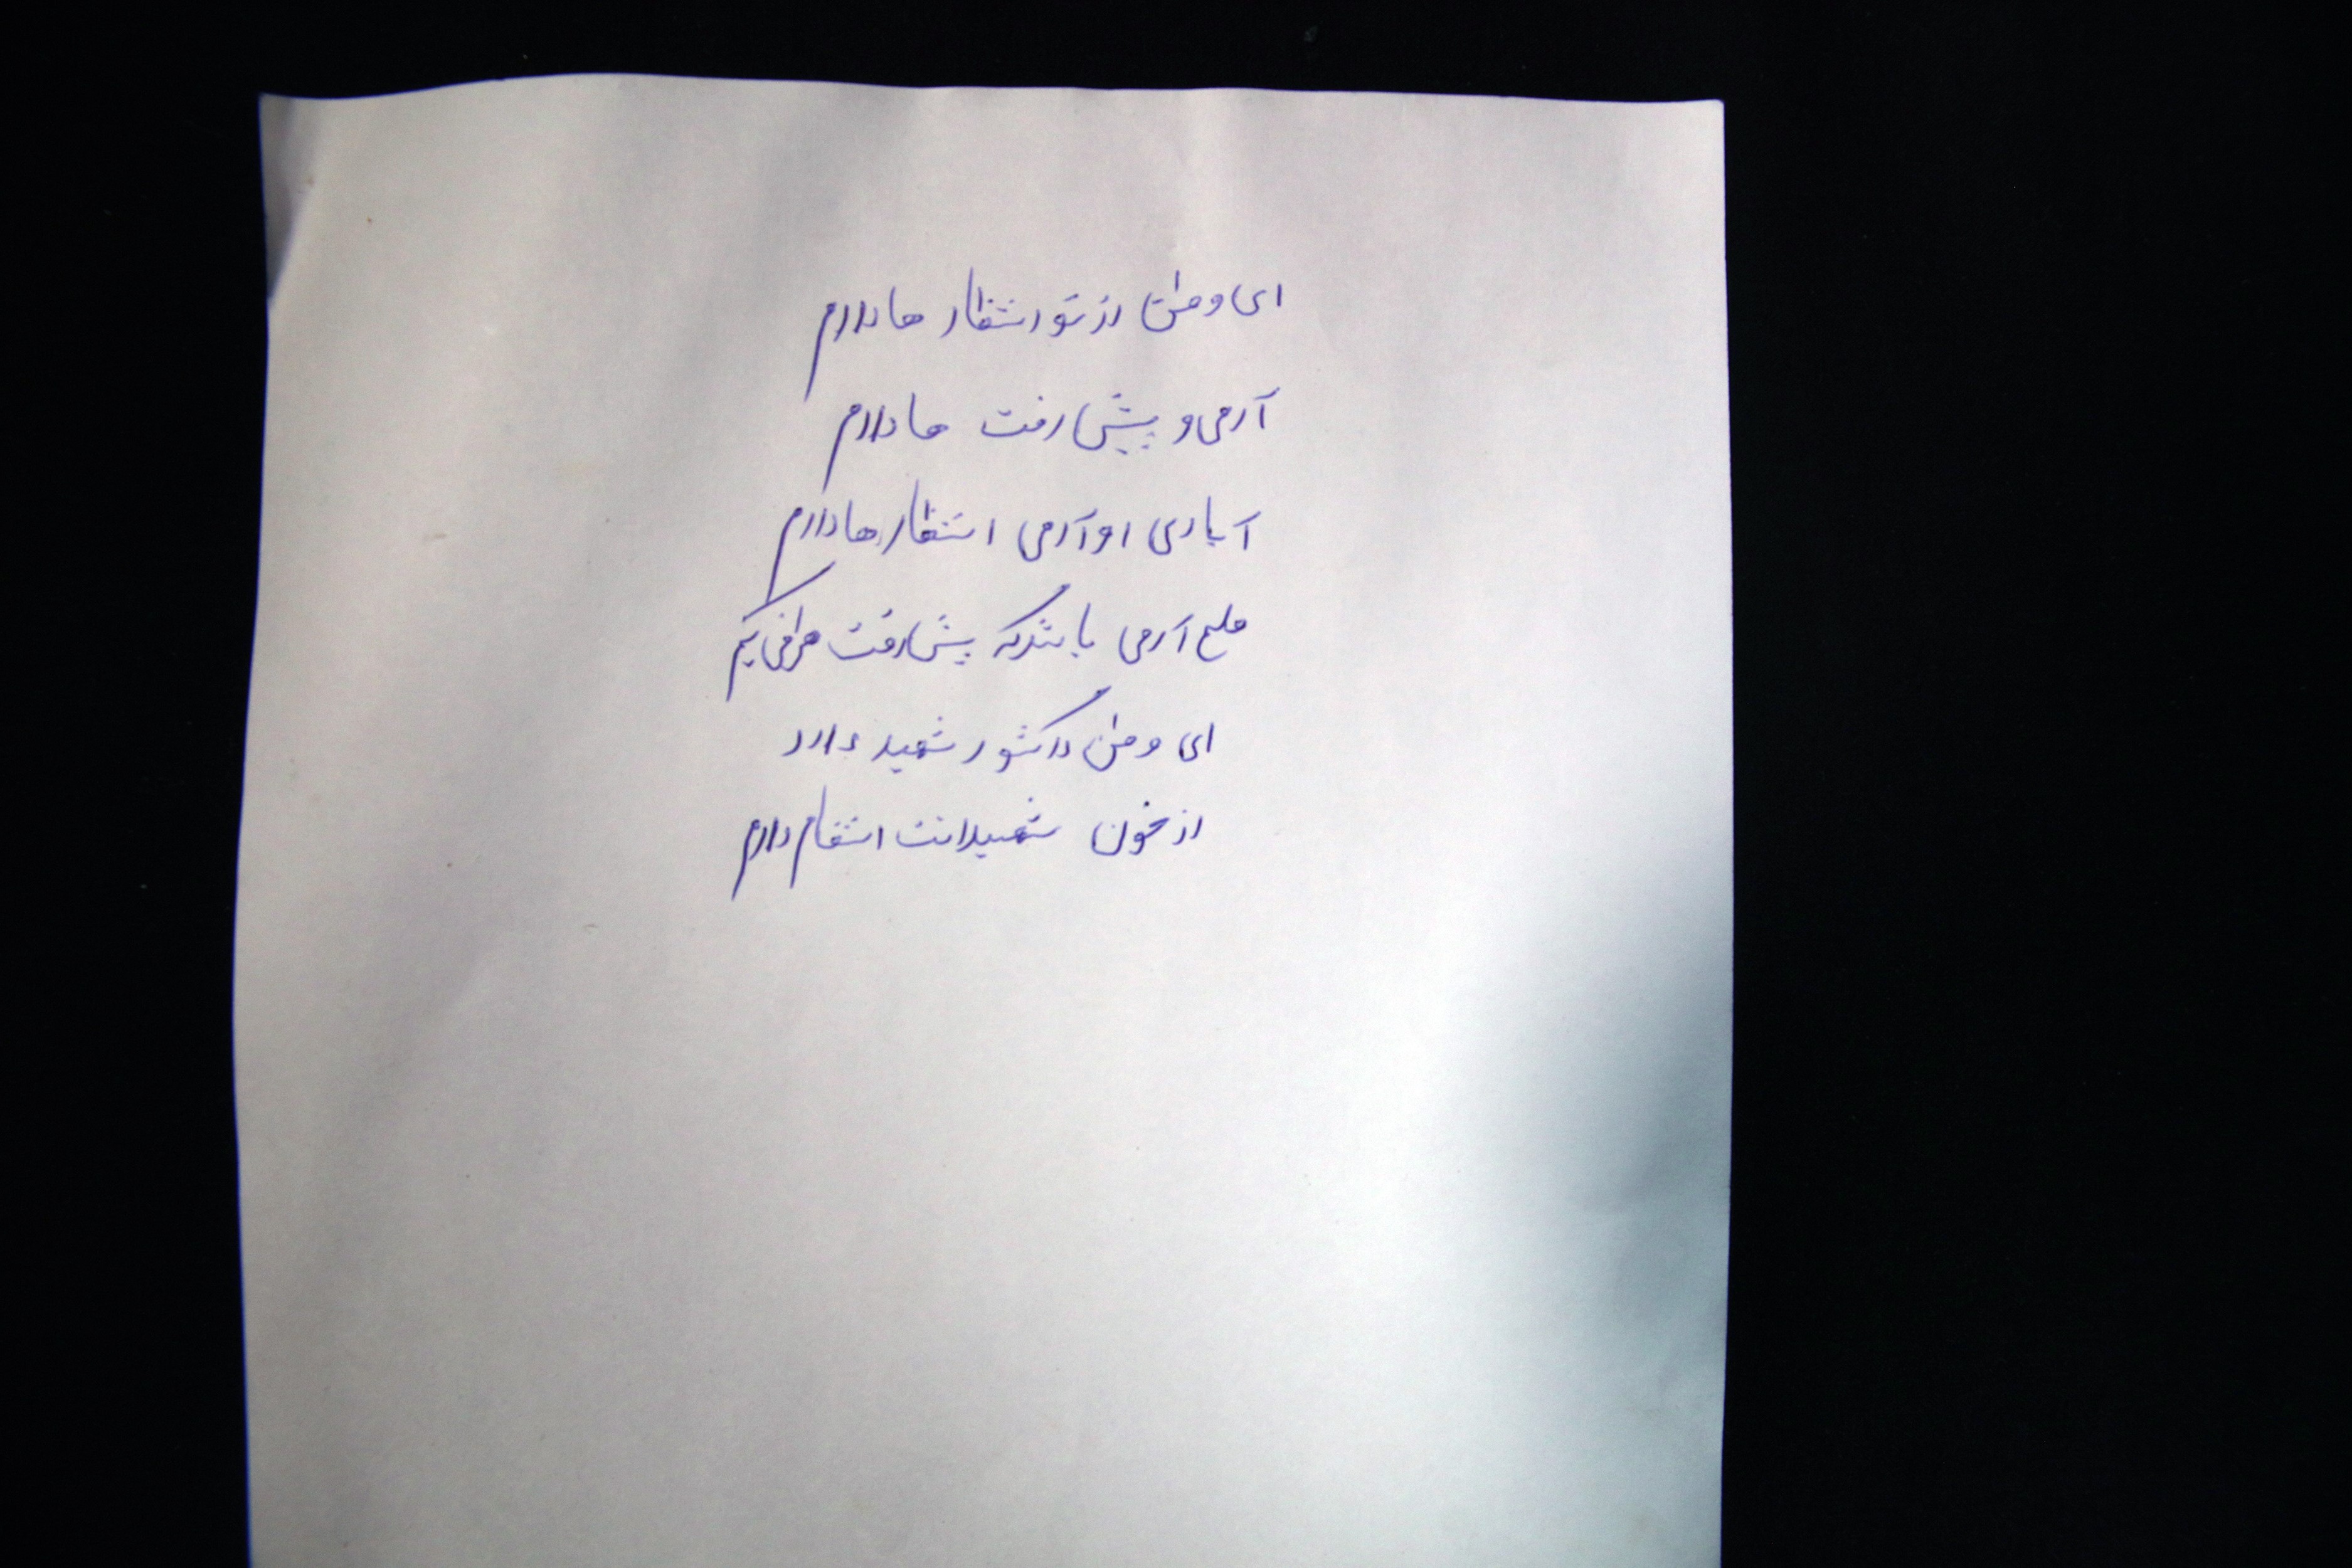 ای وطن از تو انتظار ها دارم
آرمی و پیش رفت ها دارم
آبادی او آرمی انتظار ها دارم
صلح آرمی باشد که پیش رفت می کنیم
ای وطن در کشور شهید دارد
از خون شهیدانت انتقام دارم